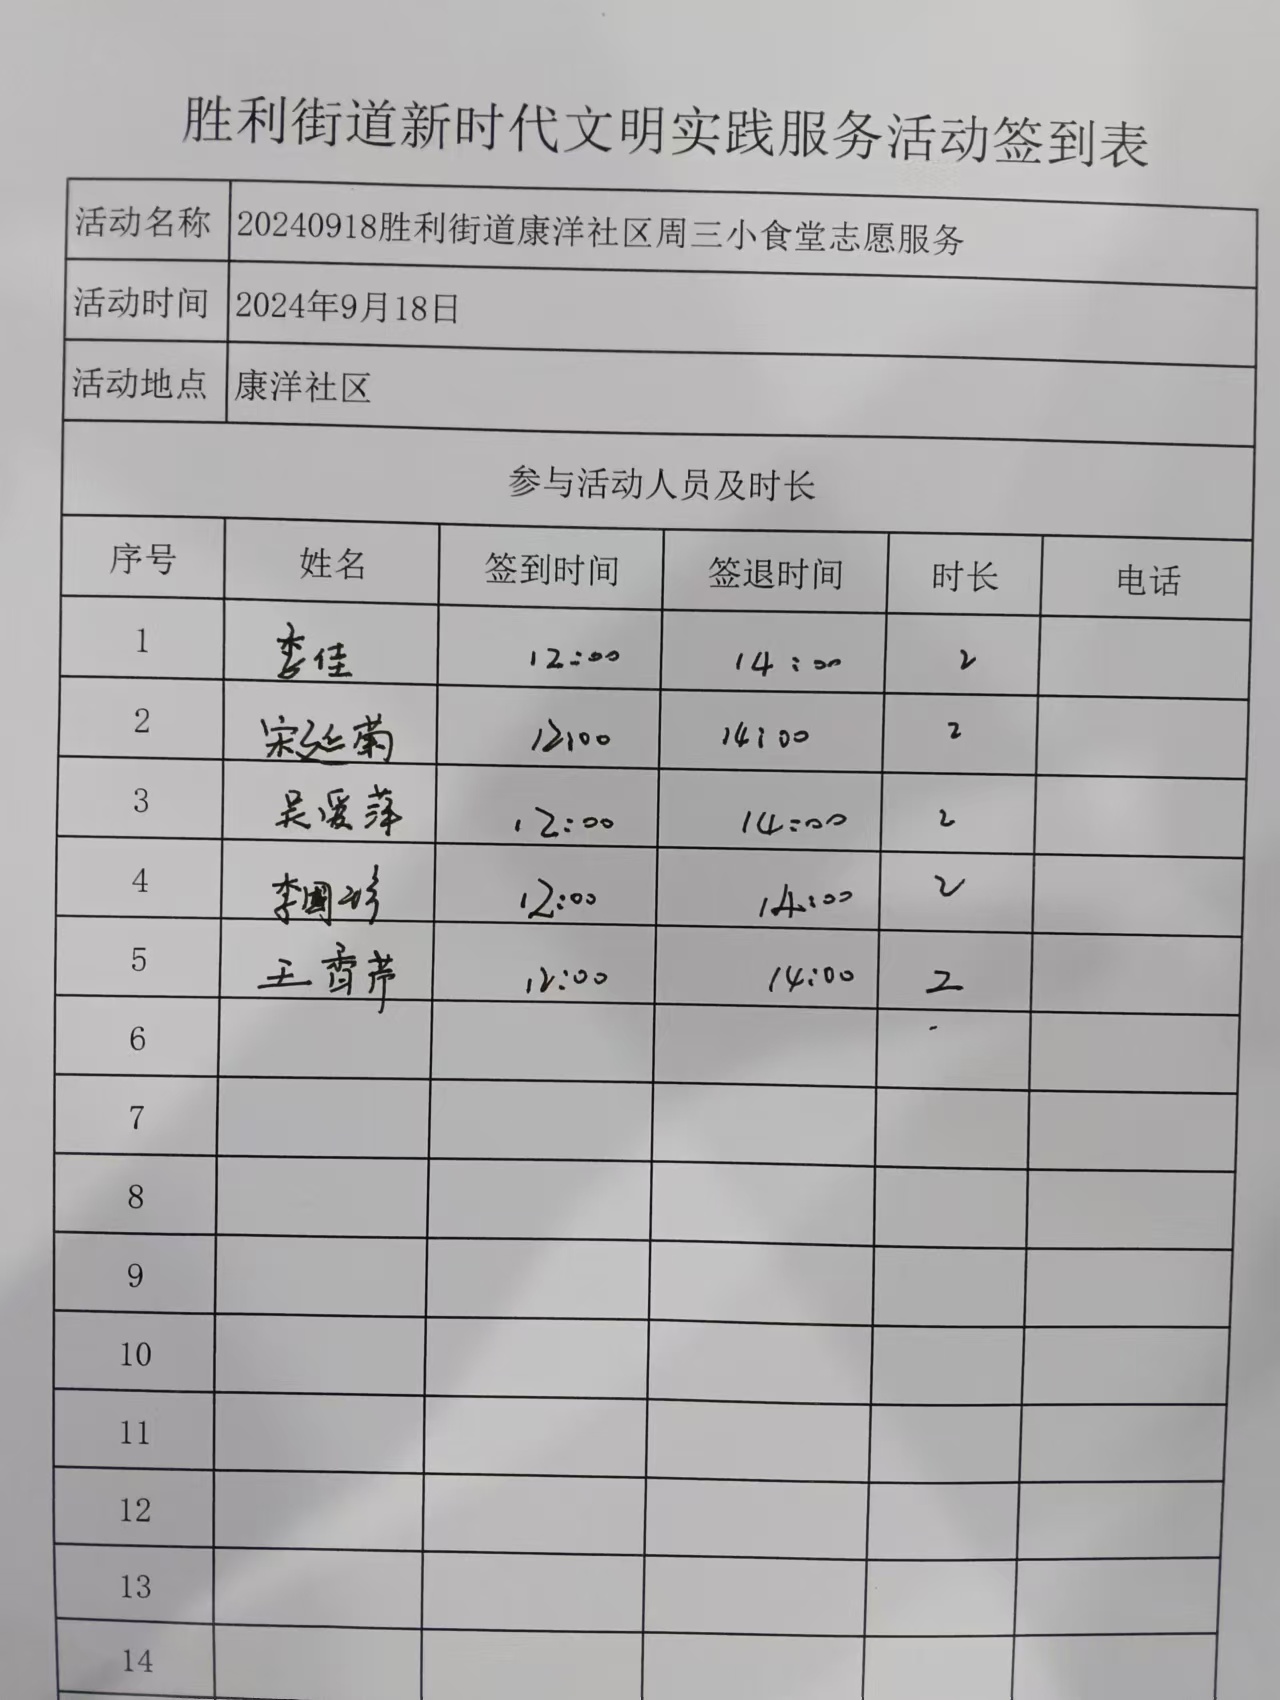 胜利街道新时代文明实践服务活动签到表
活动名称 20240918胜利街道康洋社区周三小食堂志愿服务
活动时间 2024年9月18日
活动地点 康洋社区
参与活动人员及时长
序号 姓名 签到时间 签退时间 时长 电话
1 李佳 12:00 14:00 2
2 宋延菊 12:00 14:00 2
3 吴爱萍 12:00 14:00 2
4 李国珍 12:00 14:00 2
5 王香芹 12:00 14:00 2
6
7
8
9
10
11
12
13
14